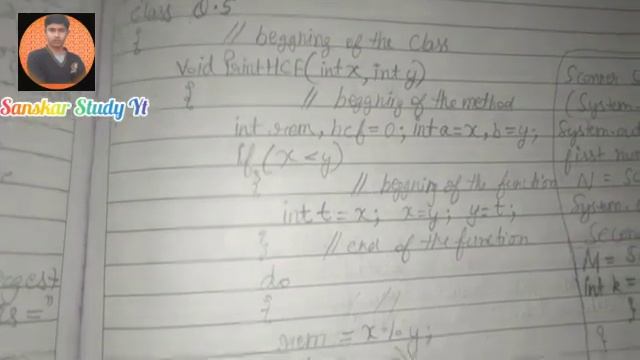 Class Q.5
{ // beggning of the class
Void PrintHCF(int x, int y)
{ // beggning of the method
int rem, hcf=0; int a=x, b=y;
If (x<y)
{ // beggning of the function
int t=x; x=y; y=t;
} // end of the function
do
{
rem = x%y;
Scanner S
(System.
System.ou
first nu
N = Sc
System.
Secon
M = S
int k =
}
{
Sanskar Study Yt